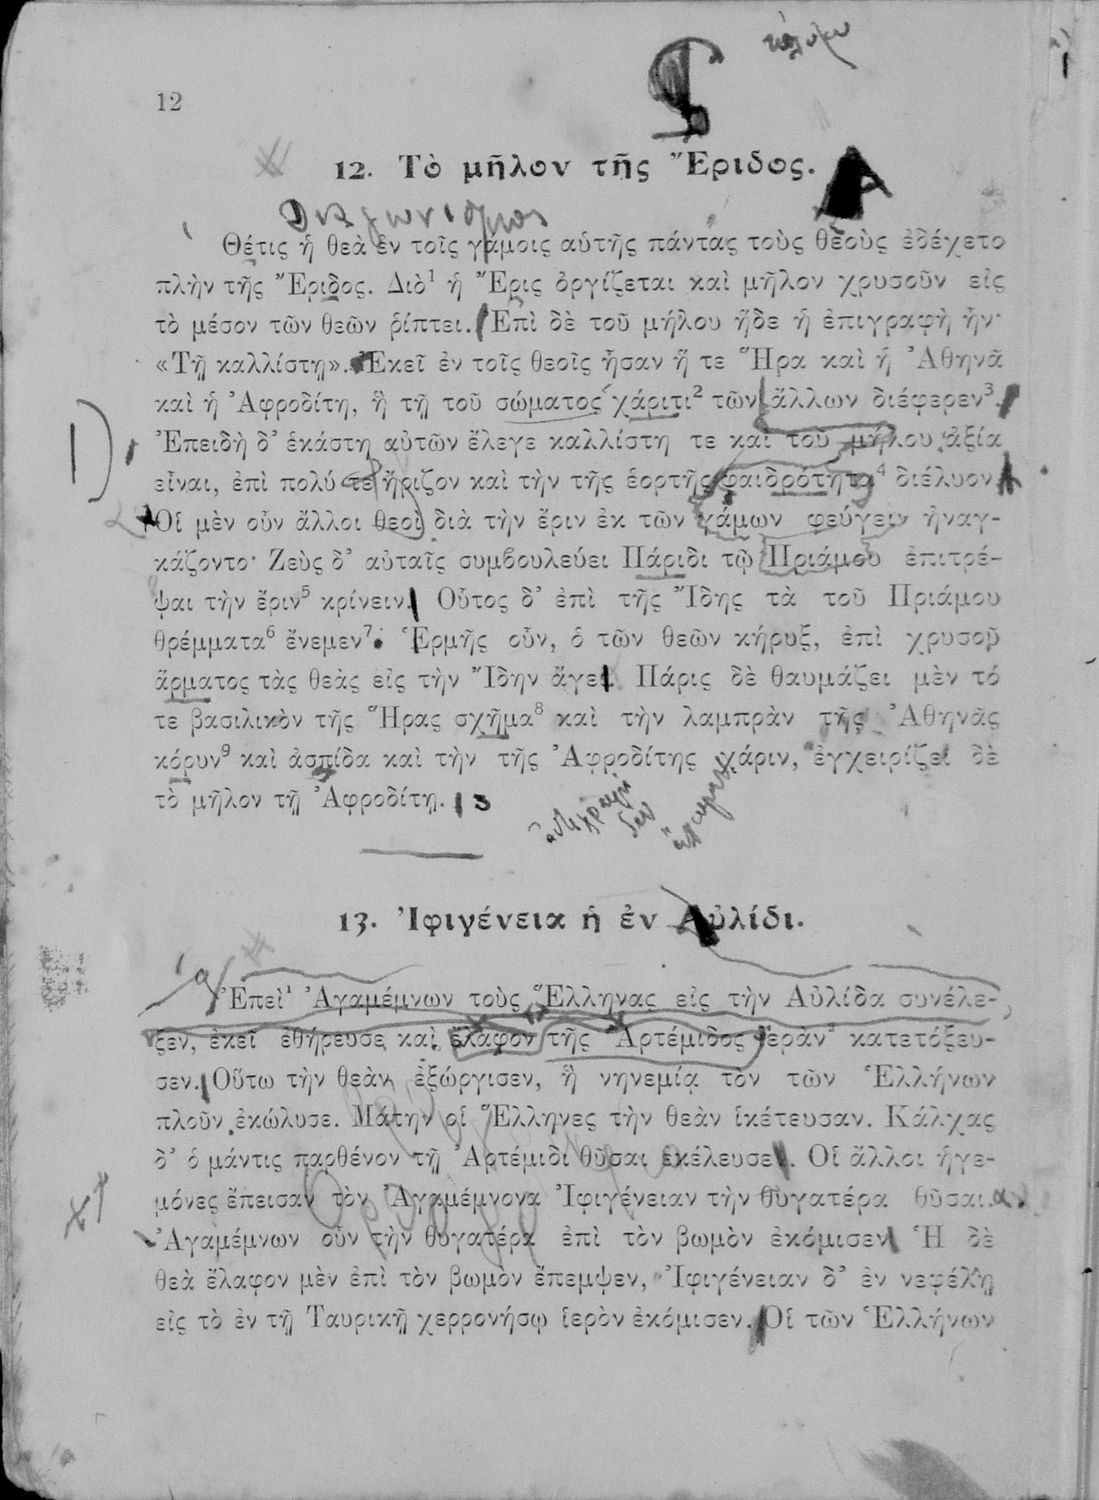 12
12. Τὸ μῆλον τῆς Ἔριδος.
Διαγωνισμος
Θέτις ἡ θεὰ ἐν τοῖς γάμοις αὑτῆς πάντας τοὺς θεοὺς ἐδέχετο
πλὴν τῆς Ἔριδος. Διὸ¹ ἡ Ἔρις ὀργίζεται καὶ μῆλον χρυσοῦν εἰς
τὸ μέσον τῶν θεῶν ῥίπτει. Ἐπὶ δὲ τοῦ μήλου ἥδε ἡ ἐπιγραφὴ ἦν·
«Τῇ καλλίστῃ». Ἐκεῖ ἐν τοῖς θεοῖς ἦσαν ἥ τε Ἥρα καὶ ἡ Ἀθηνᾶ
καὶ ἡ Ἀφροδίτη, ἣ τῇ τοῦ σώματος χάριτι² τῶν ἄλλων διέφερεν³.
Ἐπειδὴ δ’ ἑκάστη αὐτῶν ἔλεγε καλλίστη τε καὶ τοῦ μήλου ἀξία
εἶναι, ἐπὶ πολύ τε ἤριζον καὶ τὴν τῆς ἑορτῆς φαιδρότητα⁴ διέλυον.
Οἱ μὲν οὖν ἄλλοι θεοὶ διὰ τὴν ἔριν ἐκ τῶν γάμων φεύγειν ἠναγ-
κάζοντο· Ζεὺς δ’ αὐταῖς συμβουλεύει Πάριδι τῷ Πριάμου ἐπιτρέ-
ψαι τὴν ἔριν⁵ κρίνειν. Οὗτος δ’ ἐπὶ τῆς Ἴδης τὰ τοῦ Πριάμου
θρέμματα⁶ ἔνεμεν⁷. Ἑρμῆς οὖν, ὁ τῶν θεῶν κήρυξ, ἐπὶ χρυσοῦ
ἅρματος τὰς θεὰς εἰς τὴν Ἴδην ἄγει. Πάρις δὲ θαυμάζει μὲν τό
τε βασιλικὸν τῆς Ἥρας σχῆμα⁸ καὶ τὴν λαμπρὰν τῆς Ἀθηνᾶς
κόρυν⁹ καὶ ἀσπίδα καὶ τὴν τῆς Ἀφροδίτης χάριν, ἐγχειρίζει δὲ
τὸ μῆλον τῇ Ἀφροδίτῃ.
13. Ἰφιγένεια ἡ ἐν Αὐλίδι.
Ἐπεὶ¹ Ἀγαμέμνων τοὺς Ἕλληνας εἰς τὴν Αὐλίδα συνέλε-
ξεν, ἐκεῖ ἐθήρευσε καὶ ἔλαφον τῆς Ἀρτέμιδος ἱερὰν² κατετόξευ-
σεν. Οὕτω τὴν θεὰν ἐξώργισεν, ἣ νηνεμίᾳ τὸν τῶν Ἑλλήνων
πλοῦν ἐκώλυσε. Μάτην οἱ Ἕλληνες τὴν θεὰν ἱκέτευσαν. Κάλχας
δ’ ὁ μάντις παρθένον τῇ Ἀρτέμιδι θῦσαι ἐκέλευσε. Οἱ ἄλλοι ἡγε-
μόνες ἔπεισαν τὸν Ἀγαμέμνονα Ἰφιγένειαν τὴν θυγατέρα θῦσαι.
Ἀγαμέμνων οὖν τὴν θυγατέρα ἐπὶ τὸν βωμὸν ἐκόμισεν. Ἡ δὲ
θεὰ ἔλαφον μὲν ἐπὶ τὸν βωμὸν ἔπεμψεν, Ἰφιγένειαν δ’ ἐν νεφέλῃ
εἰς τὸ ἐν τῇ Ταυρικῇ χερρονήσῳ ἱερὸν ἐκόμισεν. Οἱ τῶν Ἑλλήνων